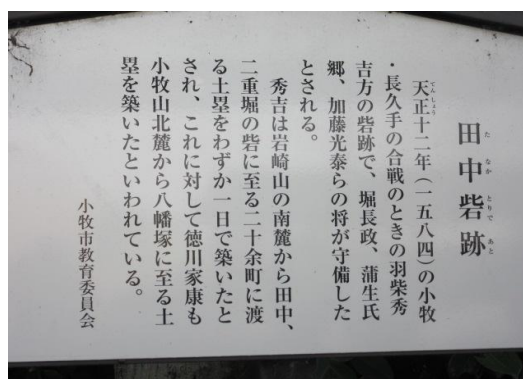 田中砦跡
天正十二年（一五八四）の小牧
・長久手の合戦のときの羽柴秀
吉方の砦跡で、堀長政、蒲生氏
郷、加藤光泰らの将が守備した
とされる。
秀吉は岩崎山の南麓から田中、
二重堀の砦に至る二十余町に渡
る土塁をわずか一日で築いたと
され、これに対して徳川家康も
小牧山北麓から八幡塚に至る土
塁を築いたといわれている。
小牧市教育委員会